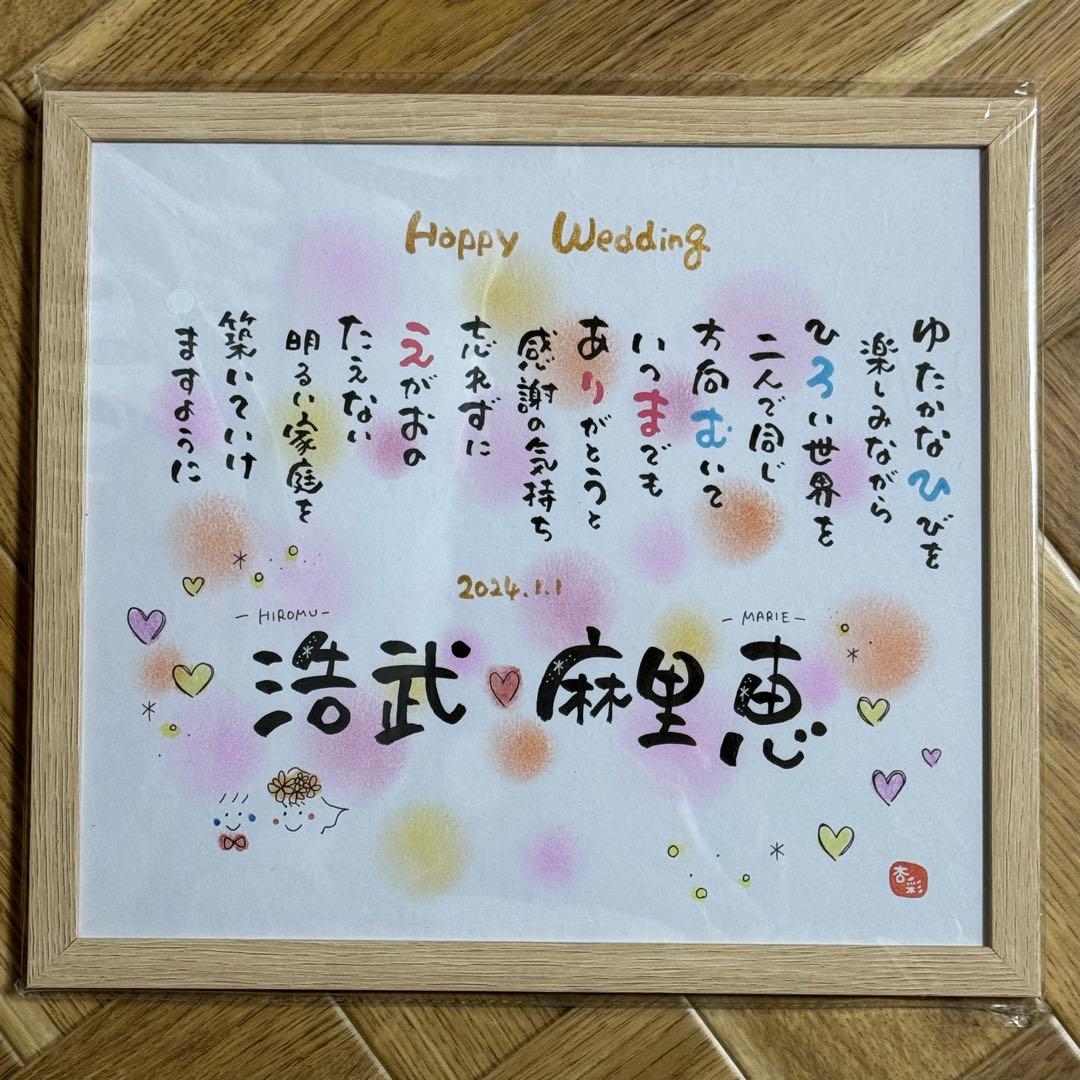 Happy Wedding
ゆたかなひびを
楽しみながら
ひろい世界を
二人で同じ
方向むいて
いつまでも
ありがとうと
感謝の気持ち
忘れずに
えがおの
たえない
明るい家庭を
築いていけ
ますように
2024.1.1
-HIROMU-
-MARIE-
浩武 麻里恵
杏彩